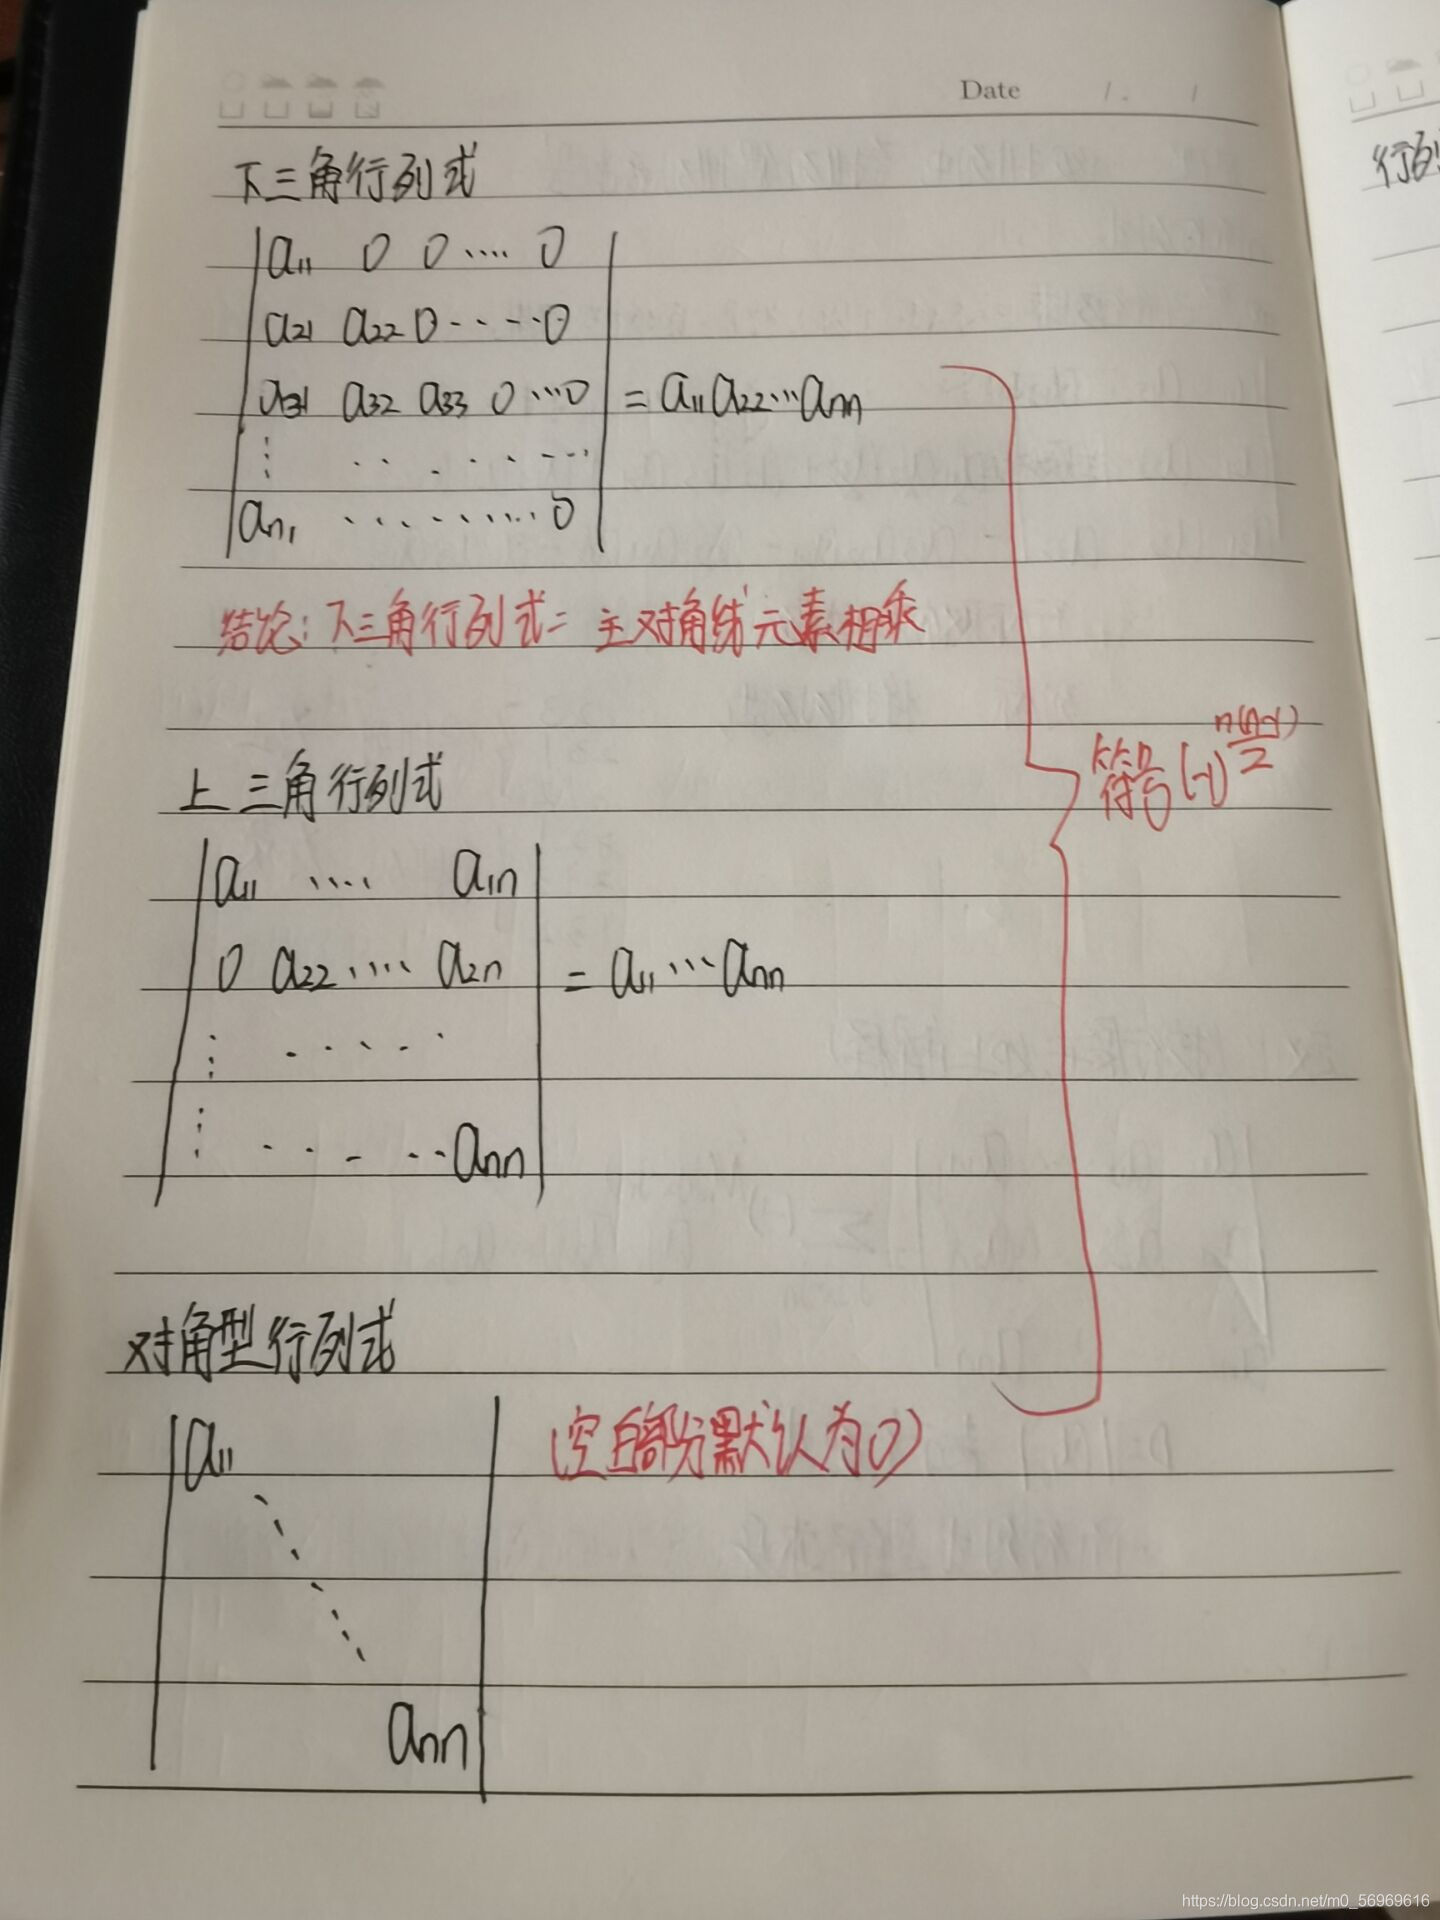 Date
下三角行列式
a11 0 0 ···· 0
a21 a22 0 ····· 0
a31 a32 a33 0 ··· 0 = a11 a22 ··· ann
⋮ ·········
an1 ········· 0
结论: 下三角行列式 = 主对角线元素相乘
符号 (-1)^{n(n-1)/2}
上三角行列式
a11 ···· a1n
0 a22 ···· a2n = a11 ··· ann
⋮ ·····
⋮ ····· ann
对角型行列式
a11 (空白部分默认为0)
ann
行列
https://blog.csdn.net/m0_56969616